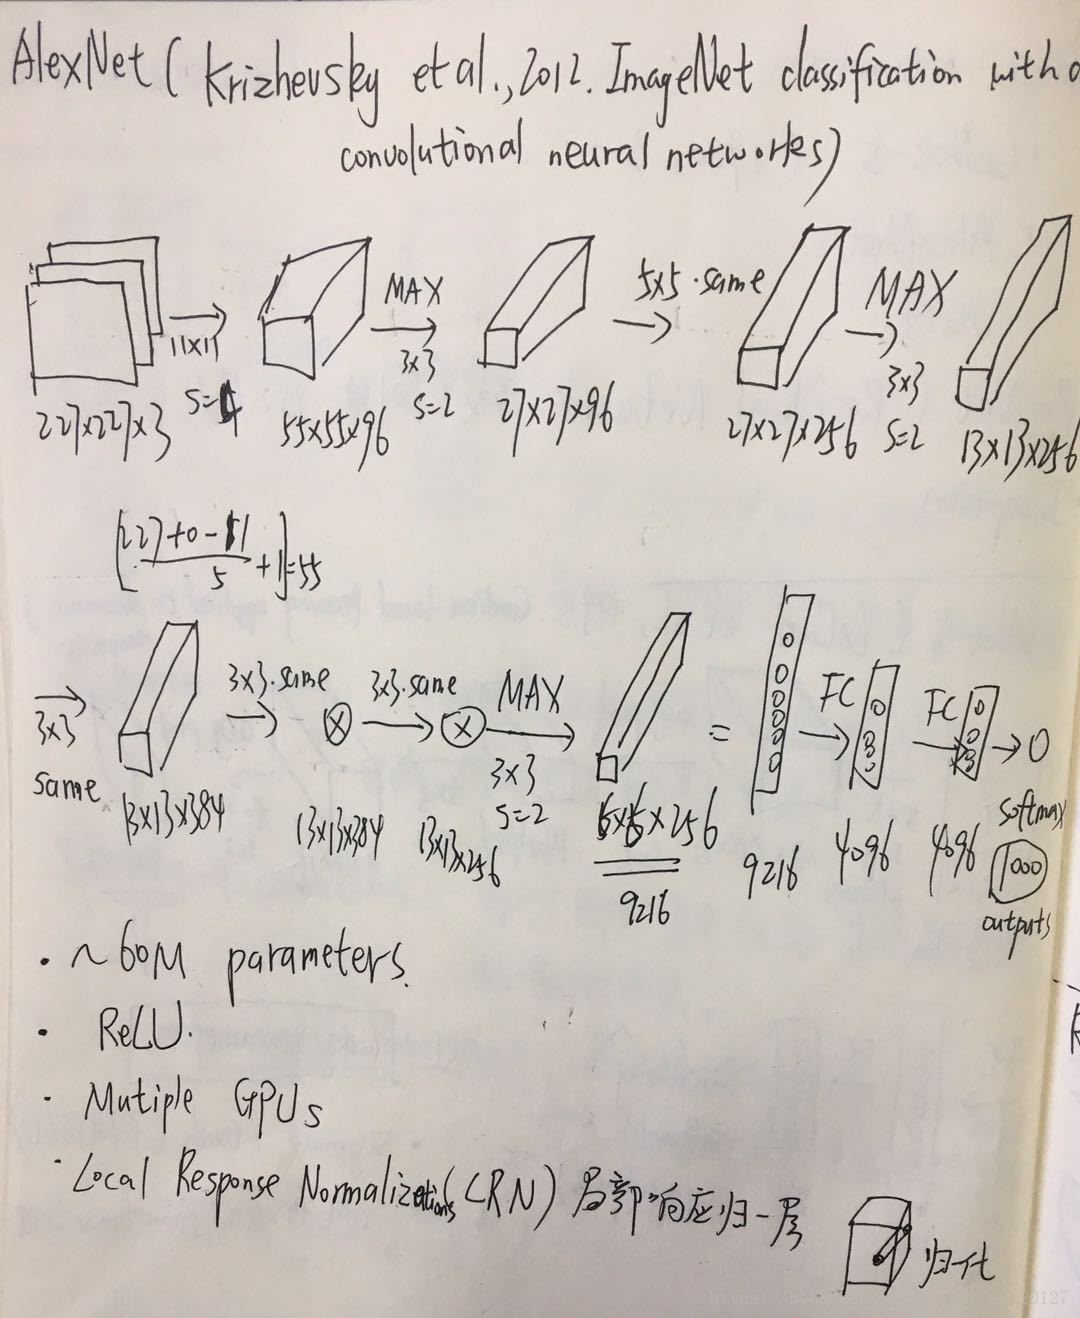 AlexNet ( Krizhevsky et al., 2012. ImageNet classification with
convolutional neural networks)
11x11
s=4
MAX
3x3
s=2
5x5 · same
MAX
3x3
s=2
227x227x3
55x55x96
27x27x96
27x27x256
13x13x256
[227+0-11/5 +1]=55
3x3
same
3x3.same
3x3.same
MAX
3x3
s=2
=
FC
FC
13x13x384
13x13x384
13x13x256
6x6x256
9216
9216
4096
4096
softmax
1000
outputs
· ~60M parameters.
· ReLU.
· Mutiple GPUs
· Local Response Normalizations (LRN) 局部响应归一层
归一化